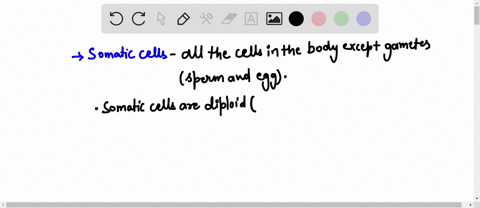 → Somatic cells - all the cells in the body except gametes
(sperm and egg).
• Somatic cells are diploid (